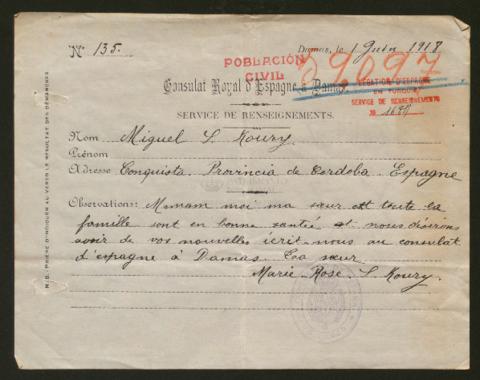 N° 135.
Damas, le 1 Juin 1918
POBLACIÓN
CIVIL
69097
Consulat Royal d'Espagne à Damas
LÉGATION D'ESPAGNE
EN TURQUIE
SERVICE DE RENSEIGNEMENTS
SERVICE DE RENSEIGNEMENTS.
Nom Miguel S. Koury
Prénom
Adresse Conquista. Provincia de Cordoba. Espagne
Observations: Maman moi ma sœur et toute la
famille sont en bonne santée et nous désirons
avoir de vos nouvelles écrit-nous au consulat
d'espagne à Damas. La sœur
Marie-Rose S. Koury.
N.B. PRIÈRE D'INDIQUER AU VERSO LE RÉSULTAT DES DÉMARCHES